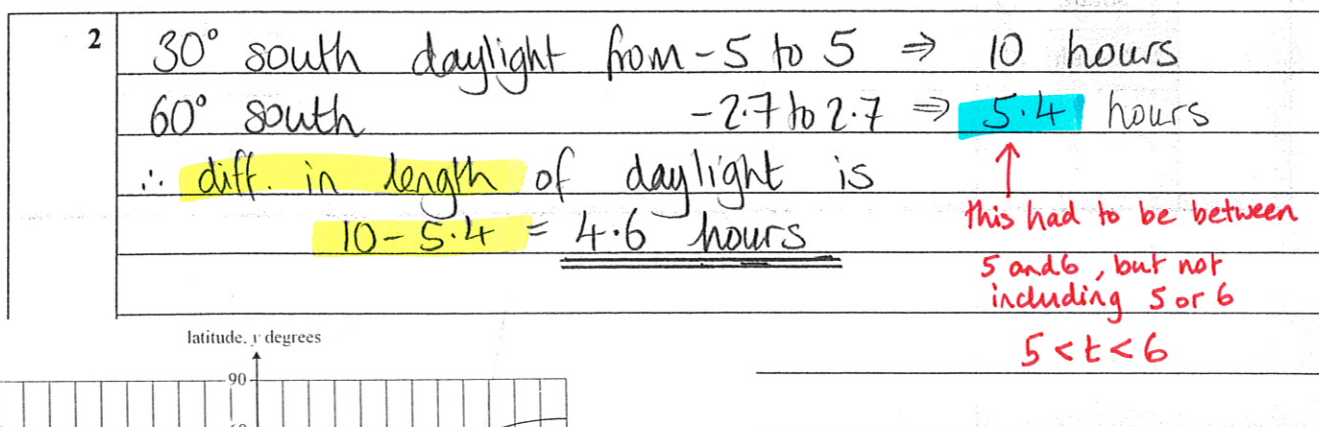 2
30° south daylight from -5 to 5 ⇒ 10 hours
60° south -2.7 to 2.7 ⇒ 5.4 hours
∴ diff. in length of daylight is
10 - 5.4 = 4.6 hours
this had to be between
5 and 6, but not
including 5 or 6
5 < t < 6
latitude, y degrees
90